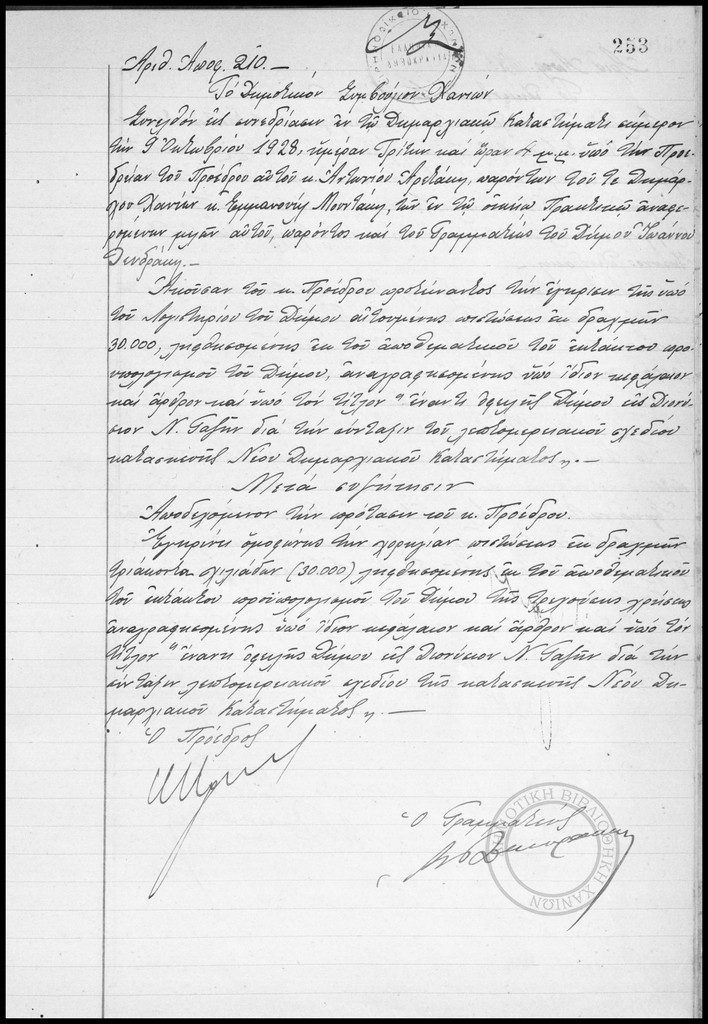 253
Ἀριθ. Ἀποφ. 210. —
Τὸ Δημοτικὸν Συμβούλιον Χανίων
Συνελθὸν εἰς συνεδρίασιν ἐν τῷ Δημαρχιακῷ Καταστήματι σήμερον
τὴν 9 Ὀκτωβρίου 1928, ἡμέραν Τρίτην καὶ ὥραν μ.μ. ὑπὸ τὴν Προε-
δρείαν τοῦ Προέδρου αὐτοῦ κ. Ἀντωνίου παρόντων τοῦ τε Δημάρ-
χου Χανίων κ. Ἐμμανουὴλ Μουντάκη, τῶν ἐν τῷ οἰκείῳ Πρακτικῷ ἀναφε-
ρομένων μελῶν αὐτοῦ, παρόντος καὶ τοῦ Γραμματέως τοῦ Δήμου Ἰωάννου
Δενδράκη. —
Ἀκοῦσαν τοῦ κ. Προέδρου προτείναντος τὴν ἔγκρισιν τῆς ὑπὸ
τοῦ Λογιστηρίου τοῦ Δήμου αἰτουμένης πιστώσεως ἐκ δραχμῶν
30.000, ληφθησομένης ἐκ τοῦ ἀποθεματικοῦ τοῦ ἐκτάκτου προ-
ϋπολογισμοῦ τοῦ Δήμου, ἀναγραφησομένης ὑπὸ ἴδιον κεφάλαιον
καὶ ἄρθρον καὶ ὑπὸ τὸν τίτλον " ἔναντι ὀφειλῆς Δήμου εἰς Διονύ-
σιον Ν. διὰ τὴν σύνταξιν τοῦ λεπτομερειακοῦ σχεδίου
κατασκευῆς Νέου Δημαρχιακοῦ Καταστήματος ". —
Μετὰ συζήτησιν
Ἀποδεχόμενον τὴν πρότασιν τοῦ κ. Προέδρου.
Ἐγκρίνει ὁμοφώνως τὴν χορηγίαν πιστώσεως ἐκ δραχμῶν
τριάκοντα χιλιάδων (30.000) ληφθησομένης ἐκ τοῦ ἀποθεματικοῦ
τοῦ ἐκτάκτου προϋπολογισμοῦ τοῦ Δήμου τῆς τρεχούσης χρήσεως
ἀναγραφησομένης ὑπὸ ἴδιον κεφάλαιον καὶ ἄρθρον καὶ ὑπὸ τὸν
τίτλον " ἔναντι ὀφειλῆς Δήμου εἰς Διονύσιον Ν. διὰ τὴν
σύνταξιν λεπτομερειακοῦ σχεδίου τῆς κατασκευῆς Νέου Δη-
μαρχιακοῦ Καταστήματος ". —
Ὁ Πρόεδρος
Ὁ Γραμματεὺς
ΔΗΜΟΤΙΚΗ ΒΙΒΛΙΟΘΗΚΗ ΧΑΝΙΩΝ